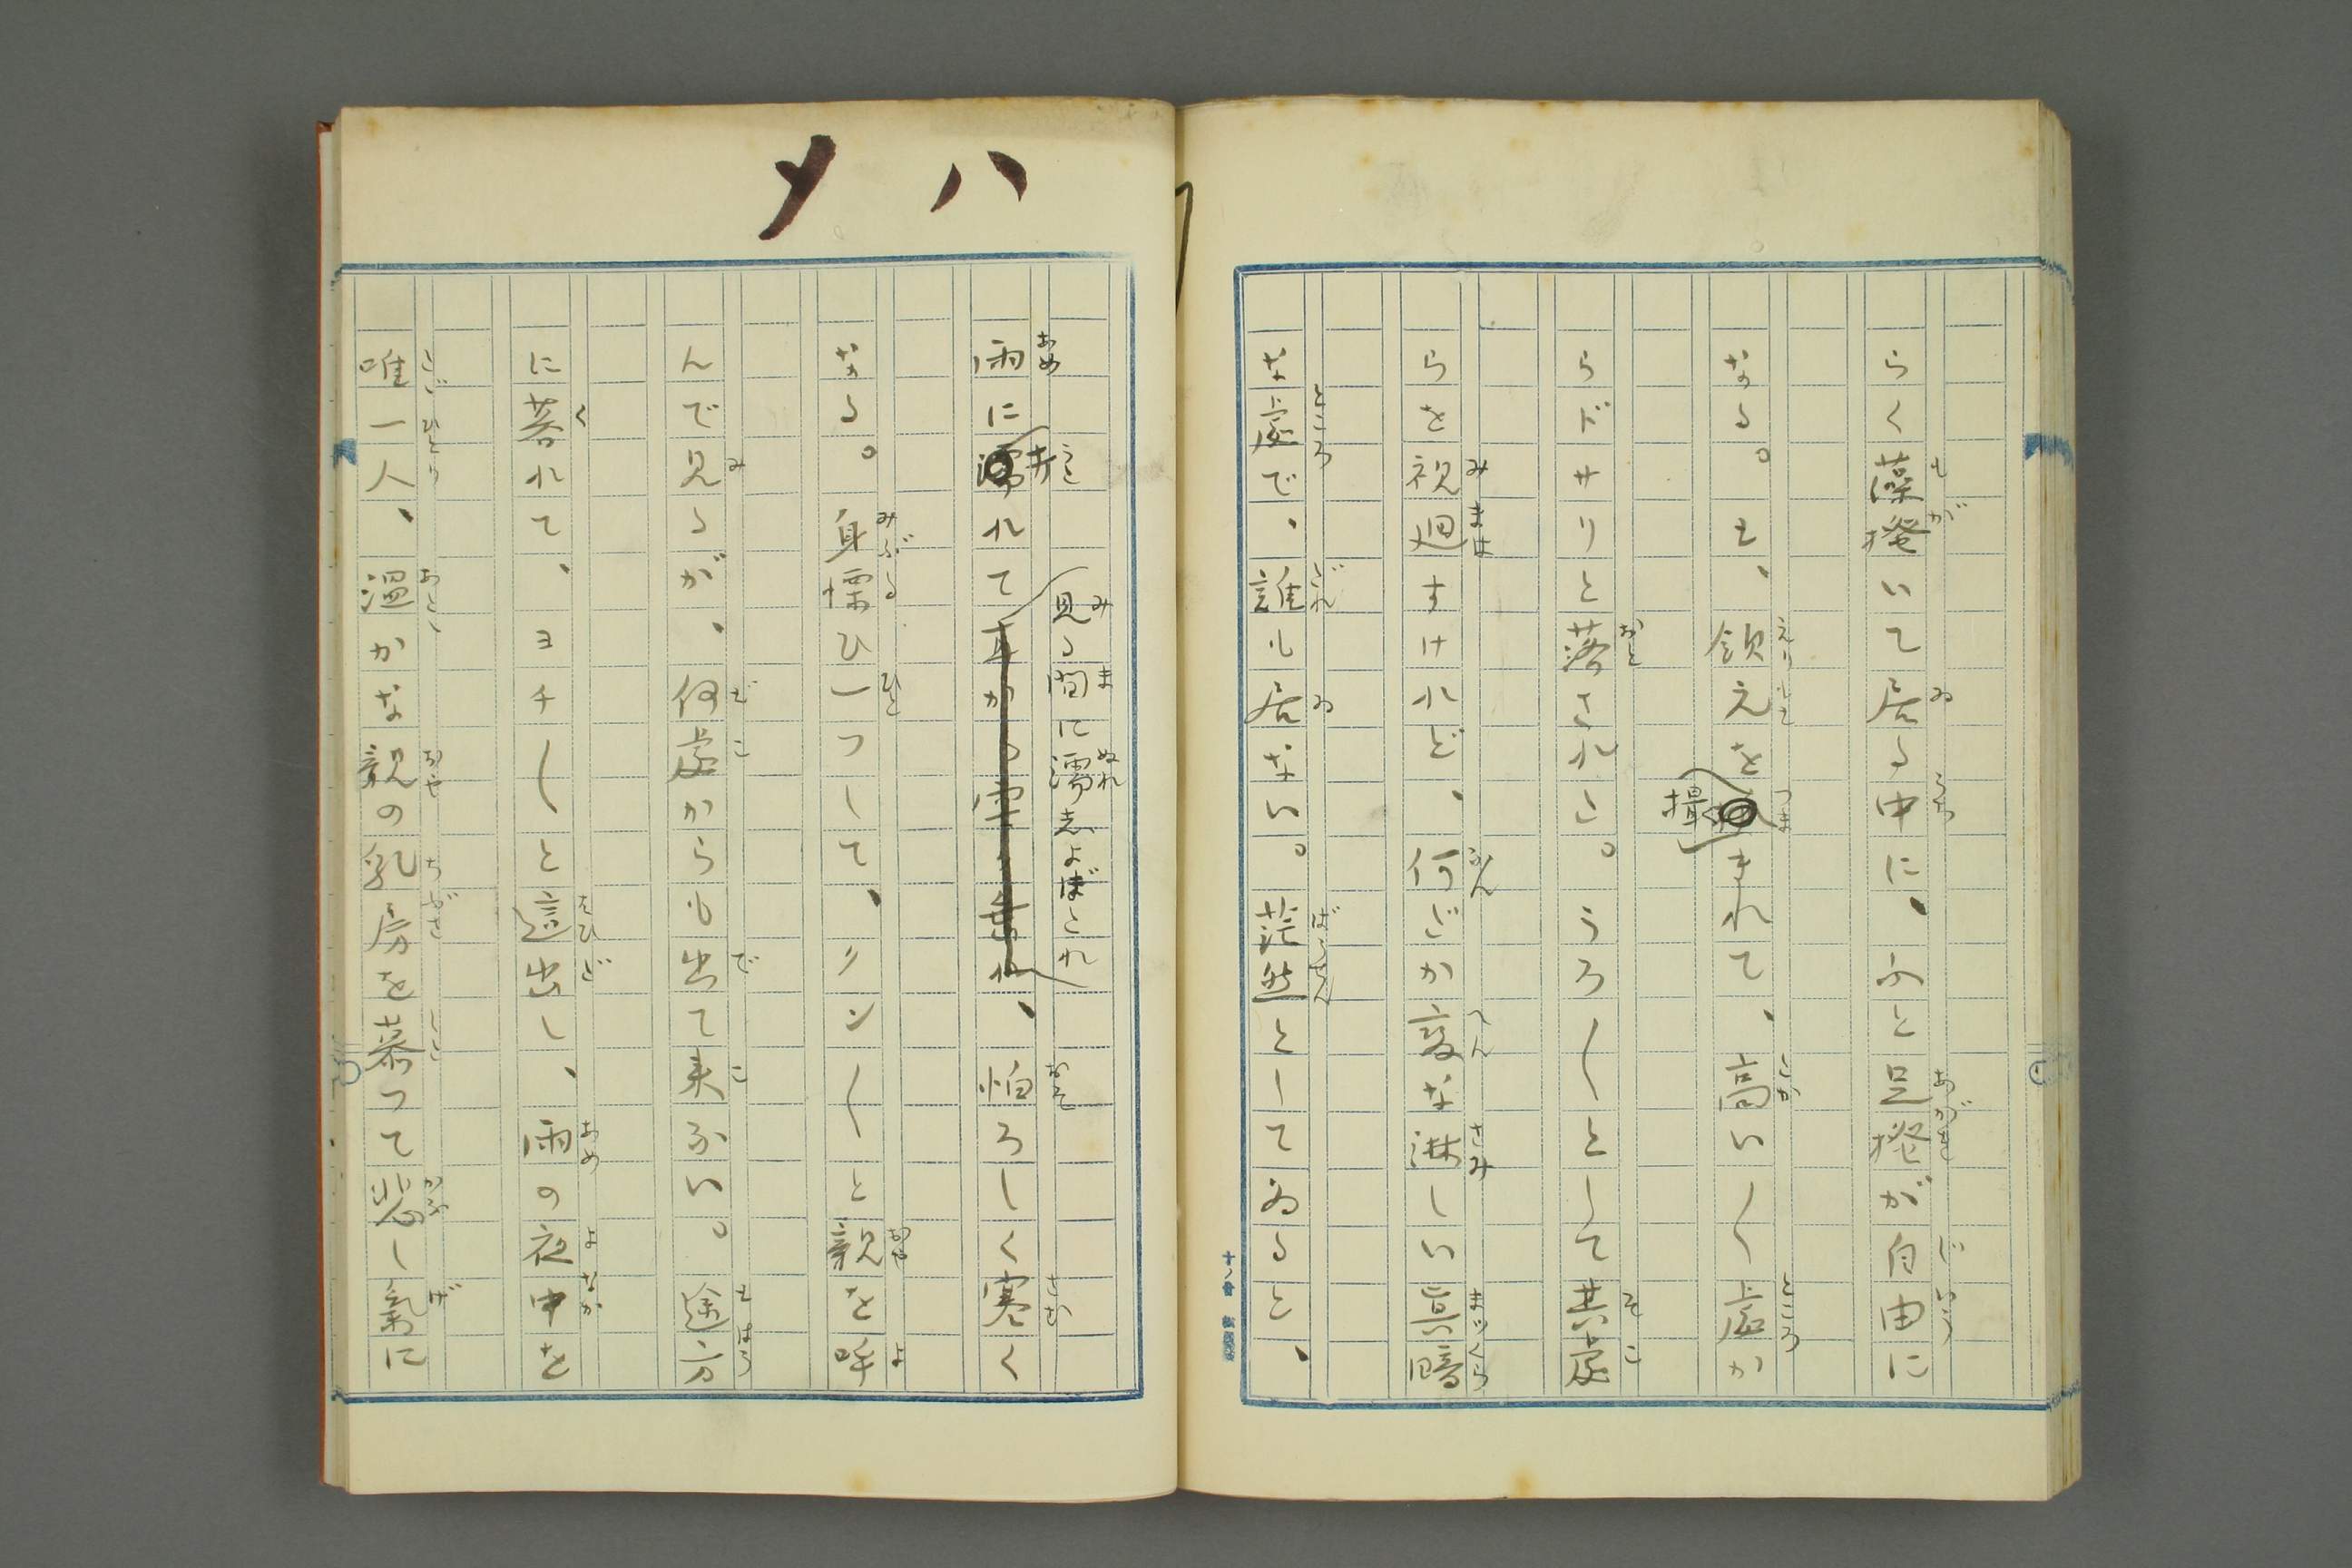 らく藻掻いて居る中に、ふと足掻が自由に
なる。と、領元を撮まれて、高い〱處か
らドサリと落された。うろ〱として其處
らを視廻すけれど、何だか變な淋しい眞暗
な處で、誰も居ない。茫然としてゐると、
八
雨に打れて見る間に濡しよぼたれ、怕ろしく寒く
なる。身慄ひ一つして、クン〱と親を呼
んで見るが、何處からも出て來ない。途方
に暮れて、ヨチ〱と這出し、雨の夜中を
唯一人、温かな親の乳房を慕つて悲し氣に